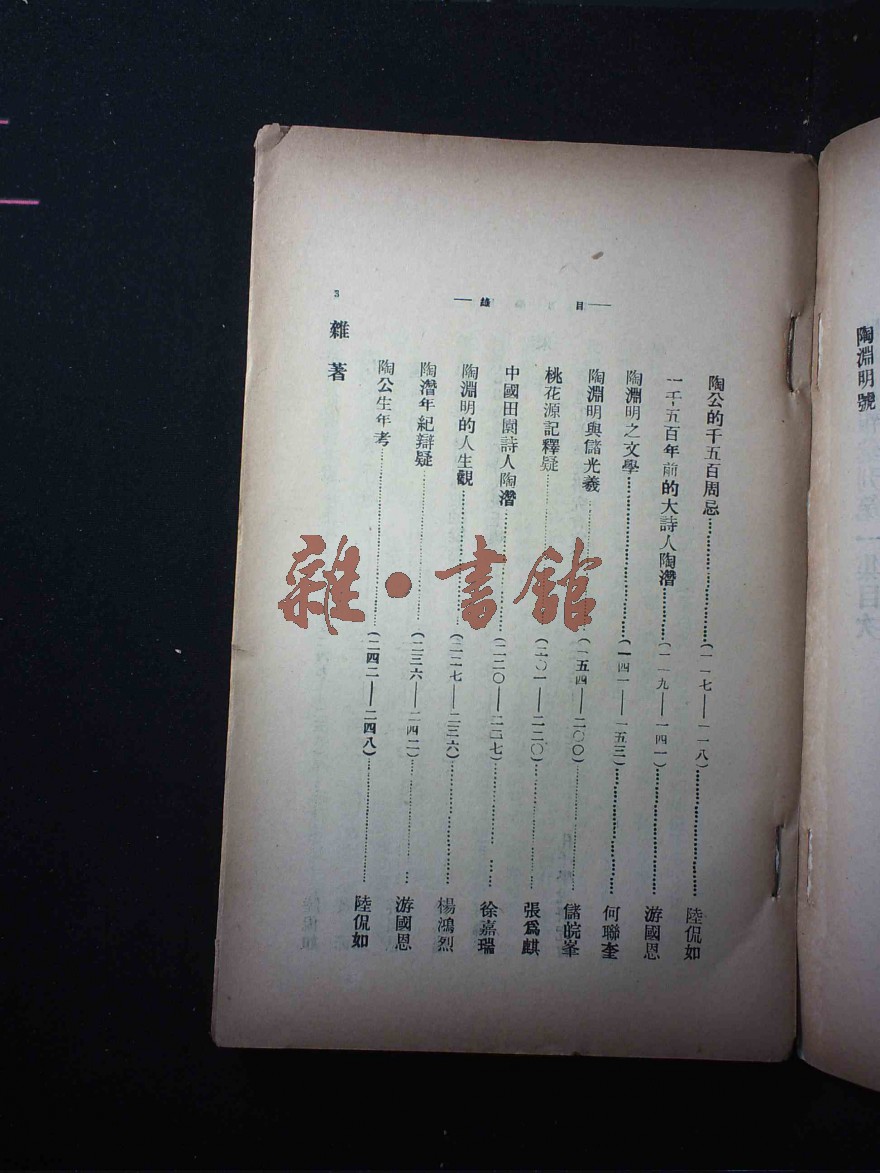 陶淵明號
目錄
陶公的千五百周忌……(一一七——一一八)……陸侃如
一千五百年前的大詩人陶潛……(一一九——一四一)……游國恩
陶淵明之文學……(一四一——一五三)……何聯奎
陶淵明與儲光羲……(一五四——二〇〇)……儲皖峯
桃花源記釋疑……(二〇一——二二〇)……張爲麒
中國田園詩人陶潛……(二二〇——二二七)……徐嘉瑞
陶淵明的人生觀……(二二七——二三六)……楊鴻烈
陶潛年紀辯疑……(二三六——二四二)……游國恩
陶公生年考……(二四二——二四八)……陸侃如
3 雜著
雜·書館